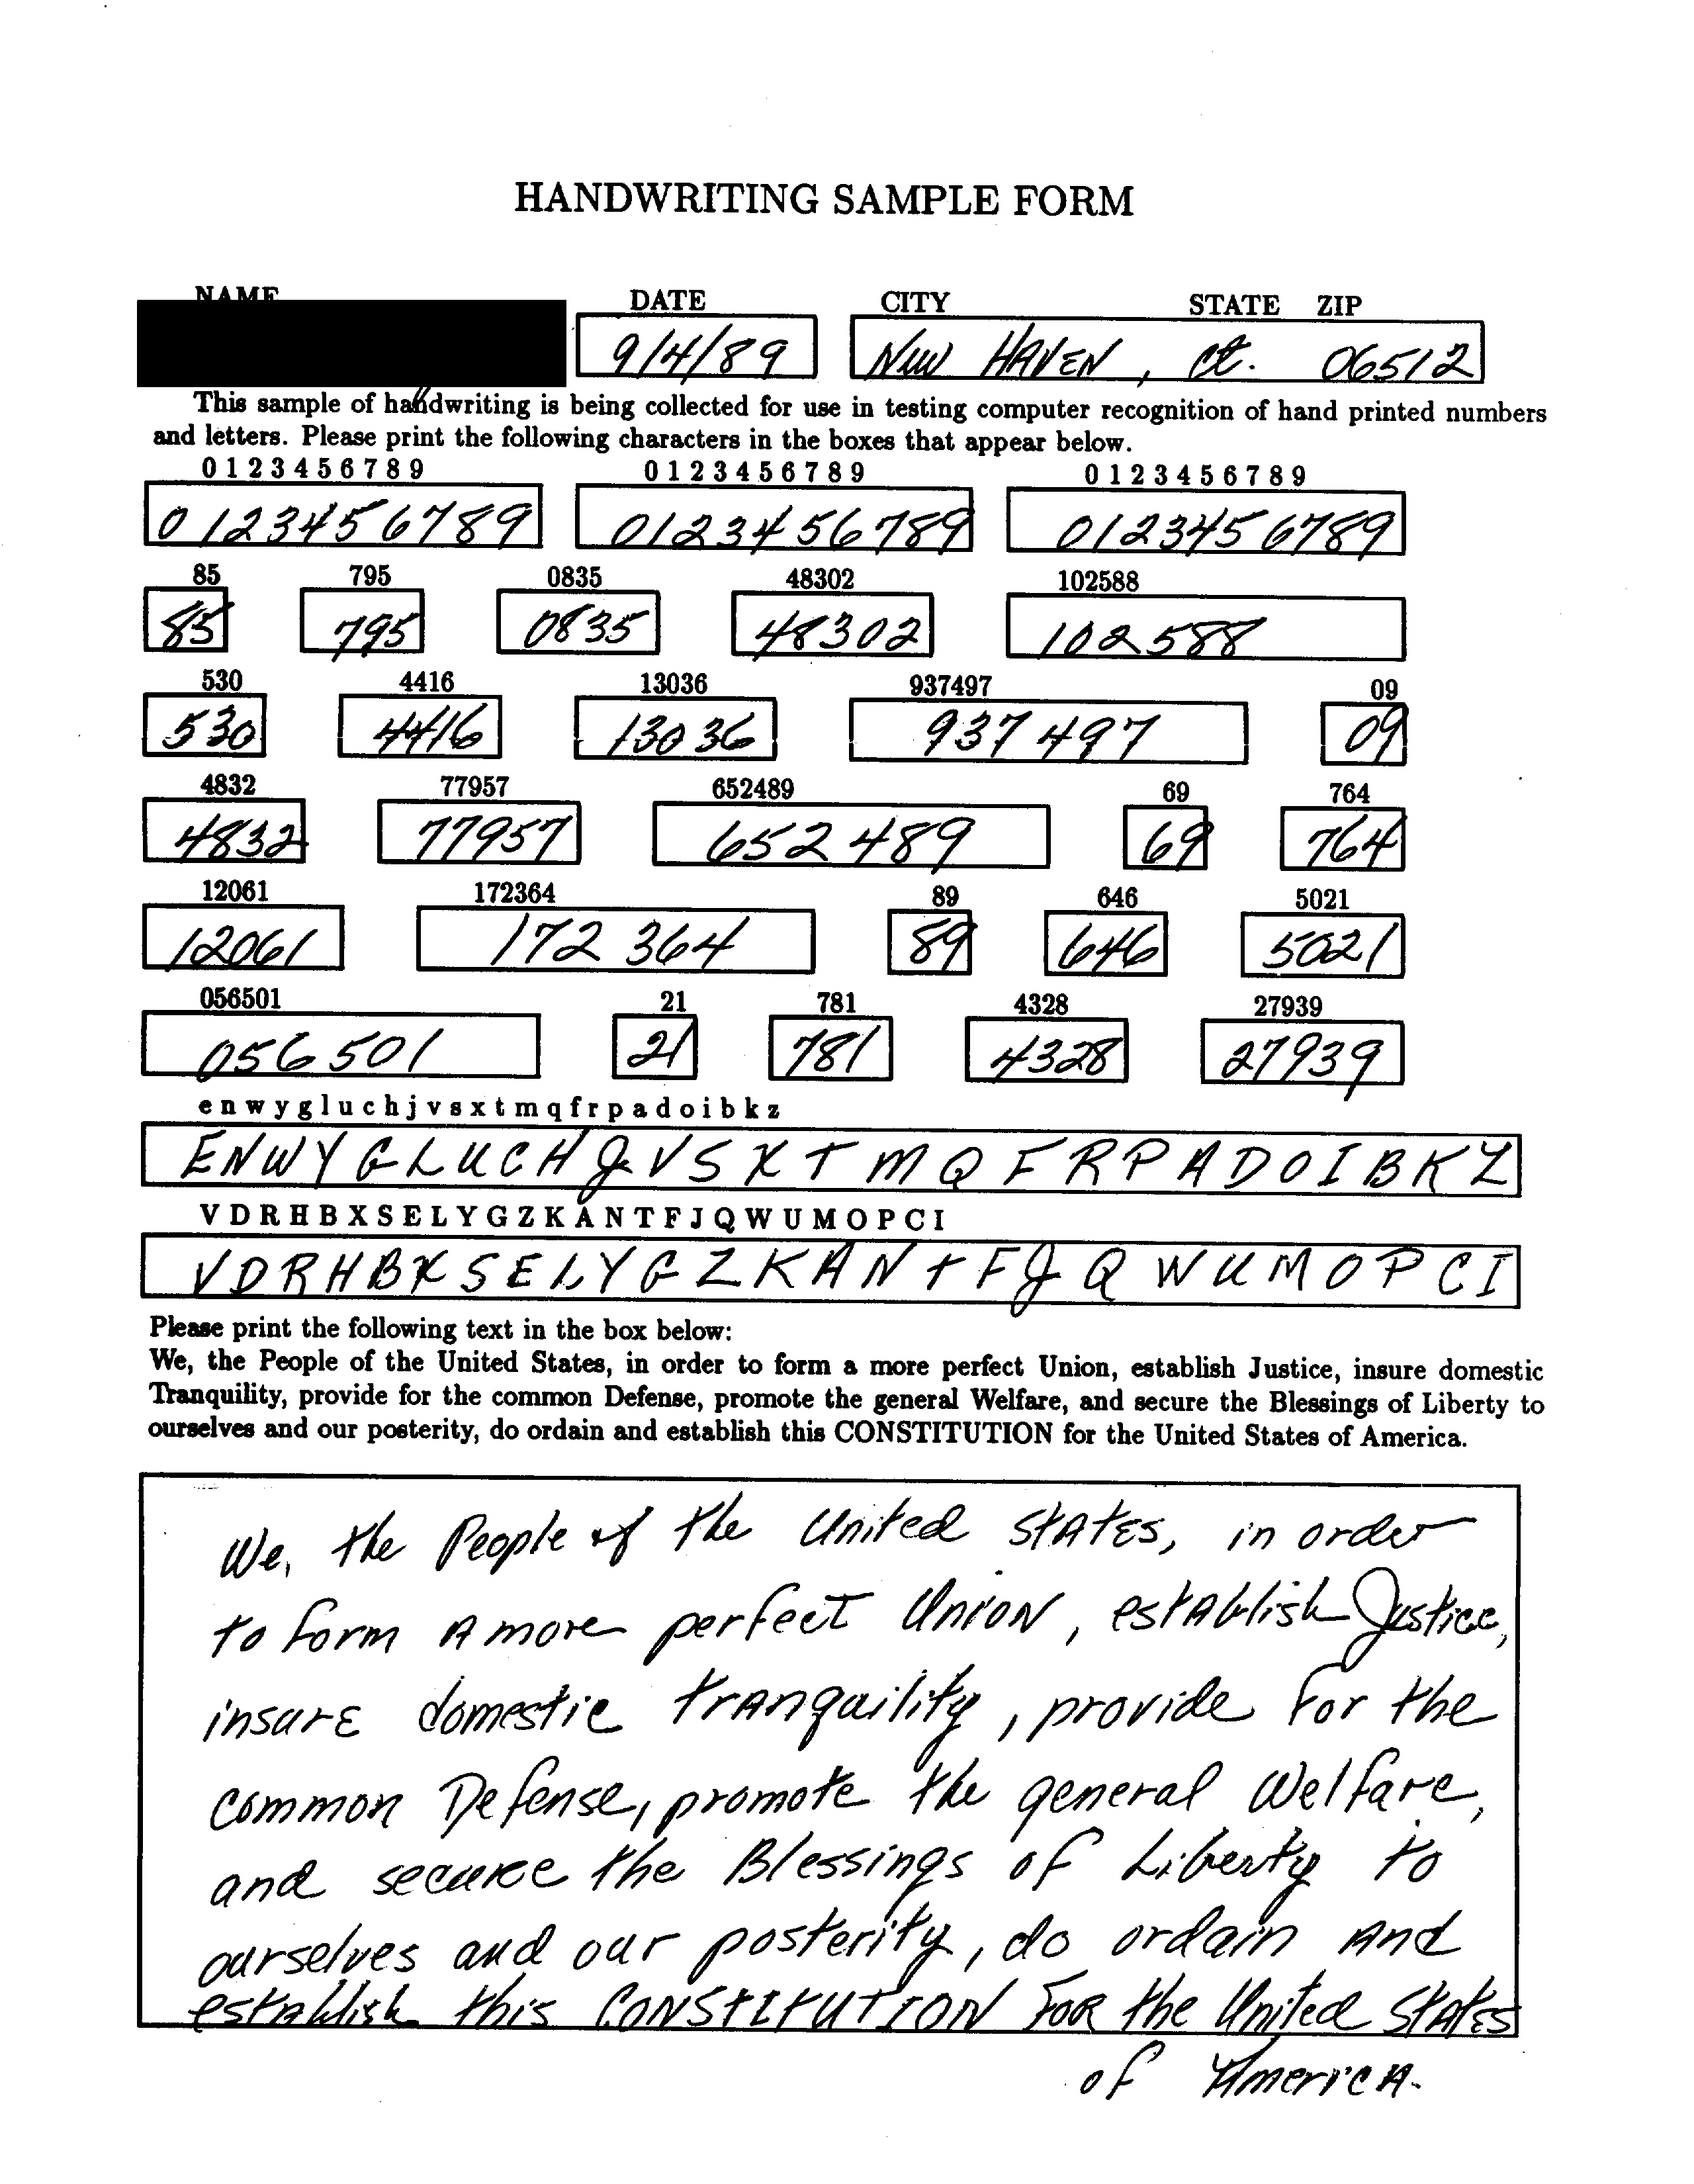 HANDWRITING SAMPLE FORM
NAME DATE CITY STATE ZIP
9/4/89 New HAVEN, Ct. 06512
This sample of handwriting is being collected for use in testing computer recognition of hand printed numbers
and letters. Please print the following characters in the boxes that appear below.
0 1 2 3 4 5 6 7 8 9 0 1 2 3 4 5 6 7 8 9 0 1 2 3 4 5 6 7 8 9
0123456789 0123456789 0123456789
85 795 0835 48302 102588
85 795 0835 48302 102588
530 4416 13036 937497 09
530 4416 13036 937497 09
4832 77957 652489 69 764
4832 77957 652489 69 764
12061 172364 89 646 5021
12061 172364 89 646 5021
056501 21 781 4328 27939
056501 21 781 4328 27939
e n w y g l u c h j v s x t m q f r p a d o i b k z
E N W Y G L U C H J V S X T M Q F R P A D O I B K Z
V D R H B X S E L Y G Z K A N T F J Q W U M O P C I
V D R H B X S E L Y G Z K A N t F J Q W U M O P C I
Please print the following text in the box below:
We, the People of the United States, in order to form a more perfect Union, establish Justice, insure domestic
Tranquility, provide for the common Defense, promote the general Welfare, and secure the Blessings of Liberty to
ourselves and our posterity, do ordain and establish this CONSTITUTION for the United States of America.
We, the People of the United StAtEs, in order
to form A more perfect UnioN, estAblish Justice,
insurE domestic trAnquility, provide For the
common Defense, promote the general Welfare,
and secure the Blessings of Liberty to
ourselves and our posterity, do ordain And
estAblish this CONStItUTION FOR the United StAtEs
of AmericA.